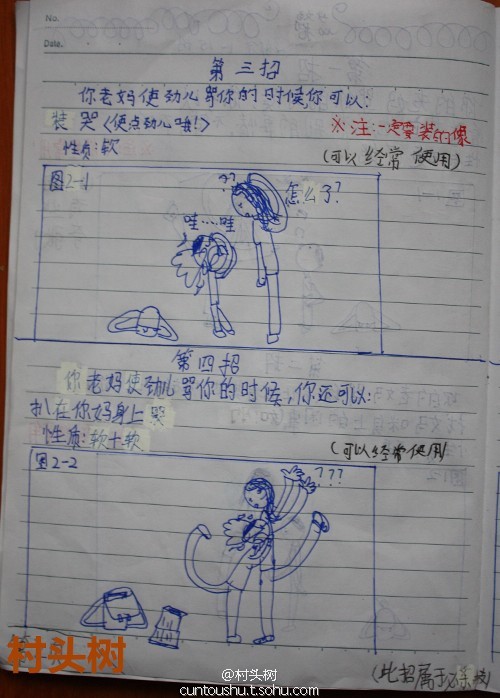 No.
Date.
第三招
你老妈使劲儿骂你的时候,你可以:
装哭<使点劲儿哦!>
※注:一定要装的像
性质:软
(可以经常使用)
图2-1
??
怎么了?
哇…哇
第四招
你老妈使劲儿骂你的时候,你还可以:
扒在你妈身上哭
性质:软+软
(可以经常使用)
图2-2
???
村头树
(此招属于必杀
@村头树
cuntoushu.t.sohu.com